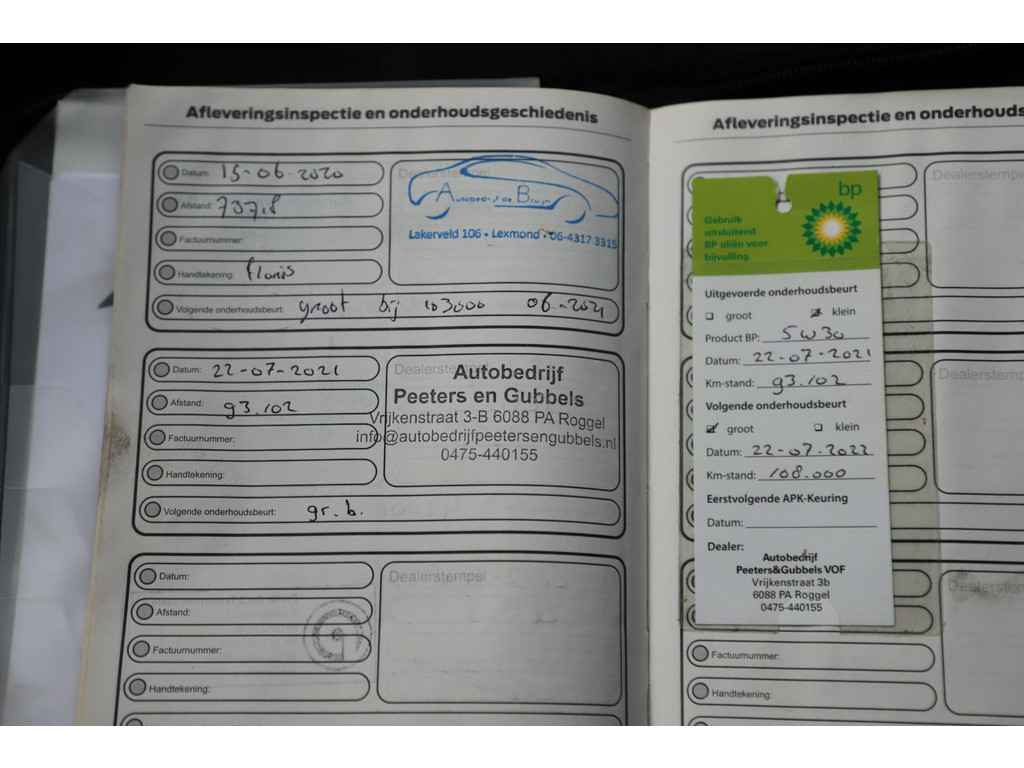 Afleveringsinspectie en onderhoudsgeschiedenis
Datum: 15-06-2020
Afstand:
Factuurnummer:
Handtekening: floris
Volgende onderhoudsbeurt: groot bij 103000 06-2021
Dealerstempel
Lakerveld 106 • Lexmond • 06-4317 3315
Datum: 22-07-2021
Afstand: 93.102
Factuurnummer:
Handtekening:
Volgende onderhoudsbeurt: gr. b.
Autobedrijf
Peeters en Gubbels
Vrijkenstraat 3-B 6088 PA Roggel
info@autobedrijfpeetersengubbels.nl
0475-440155
Datum:
Afstand:
Factuurnummer:
Handtekening:
Dealerstempel
Afleveringsinspectie en onderhouds
Dealerstempel
bp
Gebruik
uitsluitend
BP oliën voor
bijvulling.
Uitgevoerde onderhoudsbeurt
groot klein
Product BP: 5w30
Datum: 22-07-2021
Km-stand: 93.102
Volgende onderhoudsbeurt
groot klein
Datum: 22-07-2022
Km-stand: 108.000
Eerstvolgende APK-Keuring
Datum:
Dealer:
Autobedrijf
Peeters&Gubbels VOF
Vrijkenstraat 3b
6088 PA Roggel
0475-440155
Dealerstempel
Dealerstempel
Factuurnummer:
Handtekening: